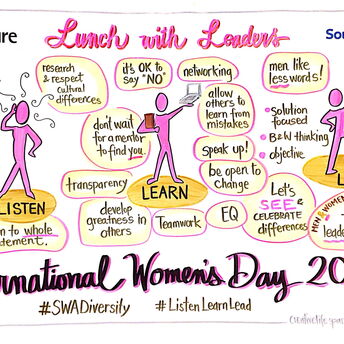 ure
Lunch with Leaders
Sou
research
& respect
cultural
differences
it's OK to
say "NO"
networking
men like
less words!
don't wait
for a mentor
to find you.
allow
others to
learn from
mistakes
• Solution
focused
• B&W thinking
• objective
Speak up!
transparency
be open to
change
LISTEN
LEARN
L
n to whole
dement.
develop
greatness in
others
Teamwork
EQ
Let's
SEE &
CELEBRATE
differences
MEN & WOMEN
T
leade
rnational Women's Day 20
#SWADiversily
#ListenLearnLead